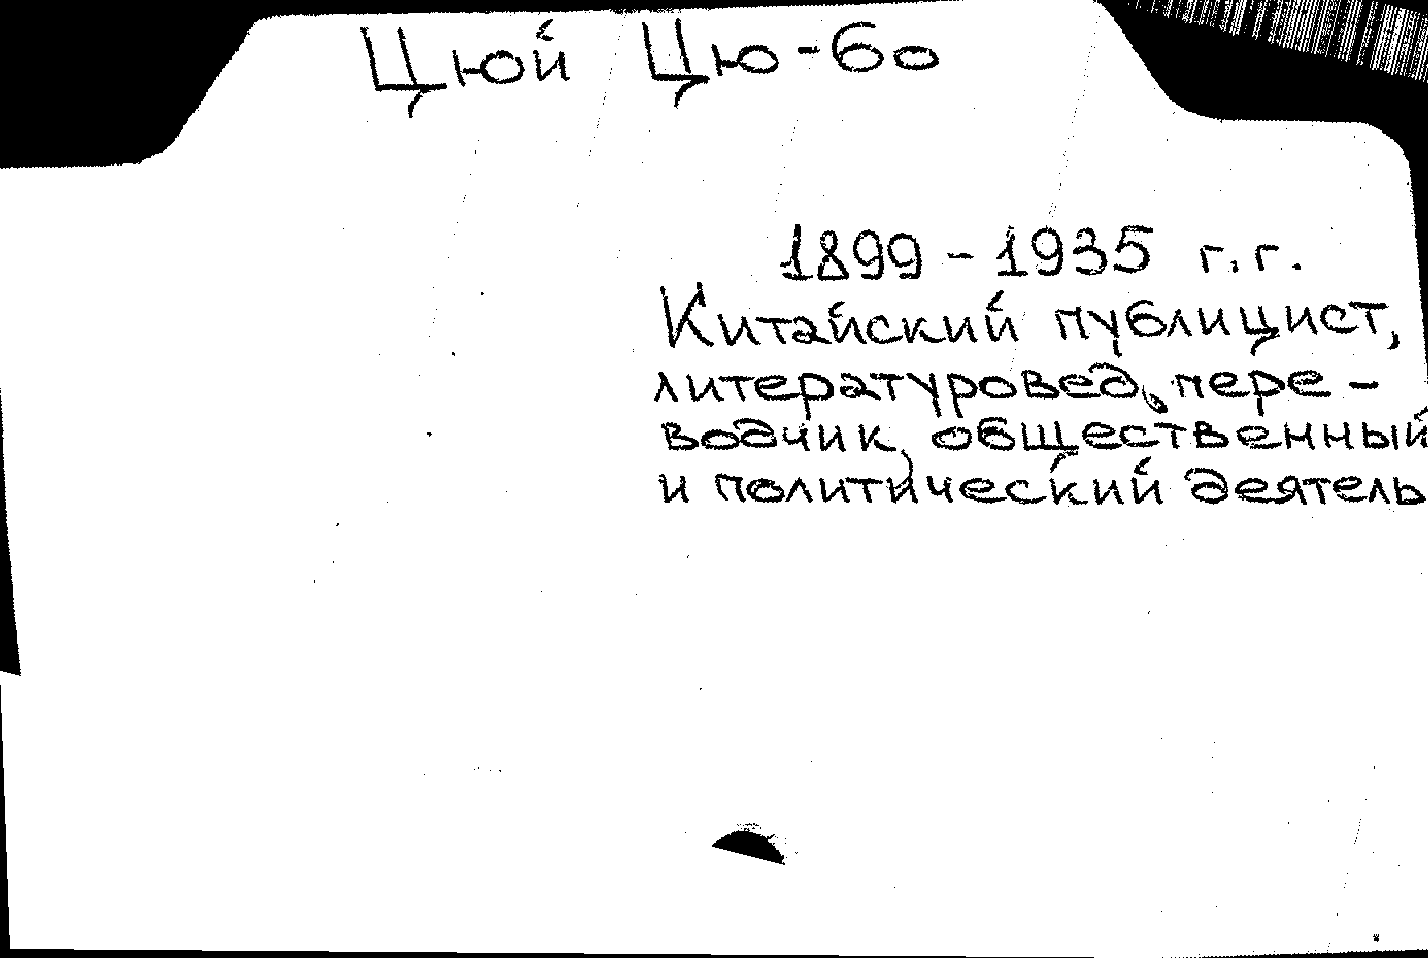 Цюй Цю-бо
1899 - 1935 г.г.
Китайский публицист,
литературовед, пере-
водчик, общественный
и политический деятель